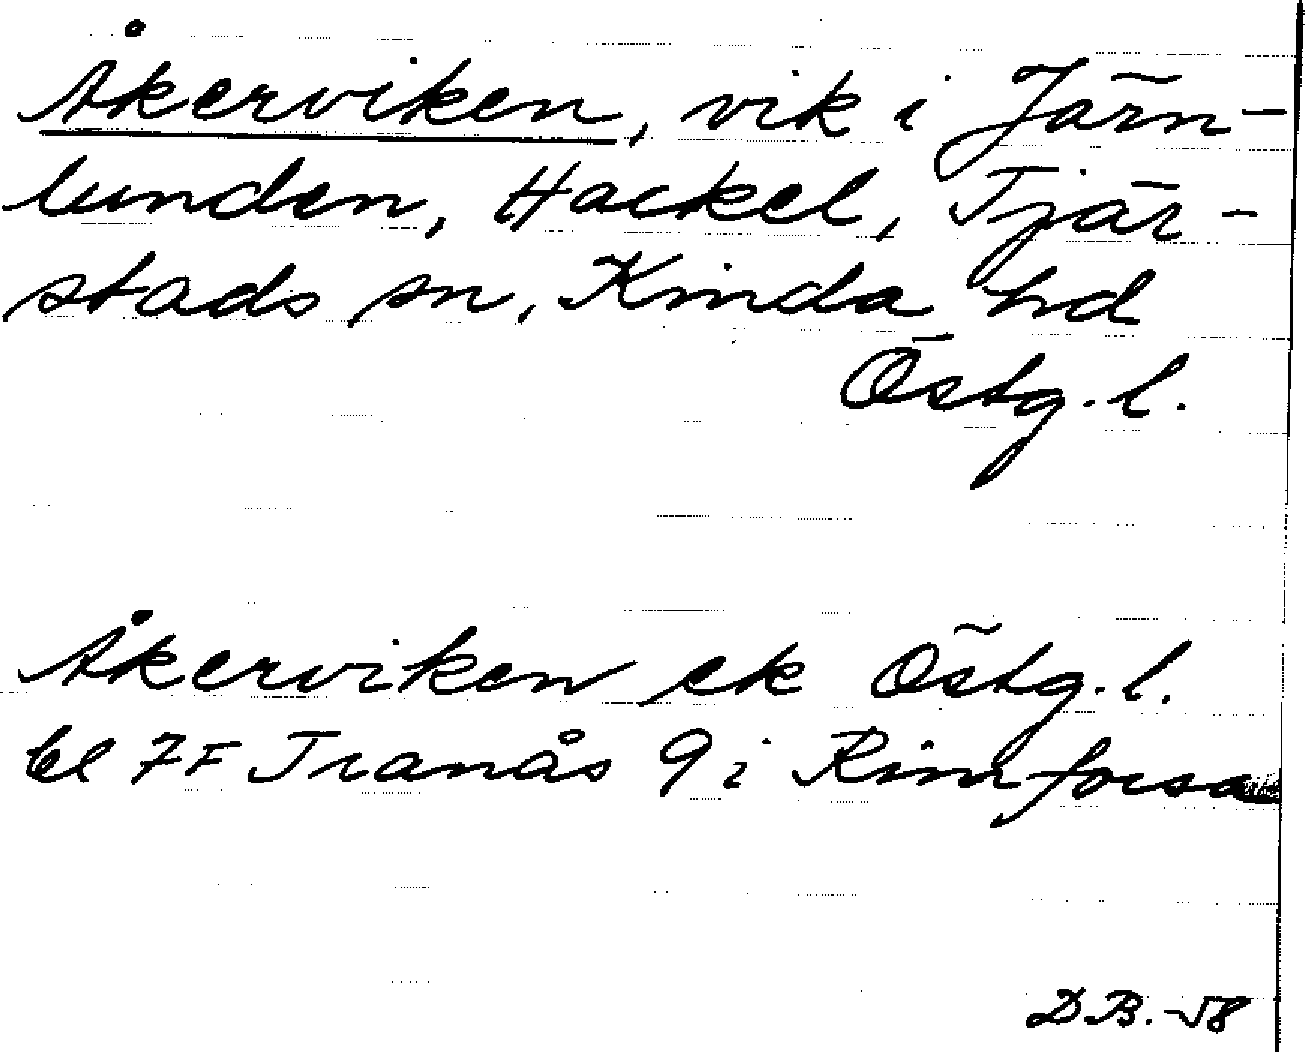 Åkerviken, vik i Järn-
lunden, Hackel, Tjär-
stads sn, Kinda hd
Östg. l.
Åkerviken ek Östg. l.
bl 7F Tranås 9 i Rimforsa
D.B. -58